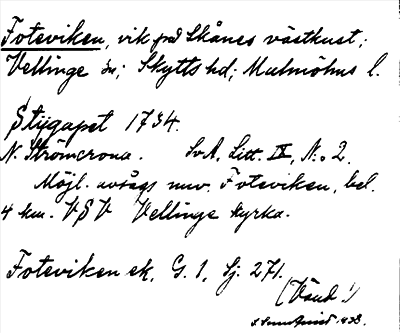 Foteviken, vik på Skånes västkust;
Vellinge sn; Skytts hd; Malmöhus l.
Stygapet 1734.
N. Strömcrona. SvA, Litt. IX, N:o 2.
Möjl. avsågs nuv. Foteviken, bel.
4 km. VSV Vellinge kyrka.
Foteviken ek. G. 1, Sj. 271.
(Vänd!)
1938.